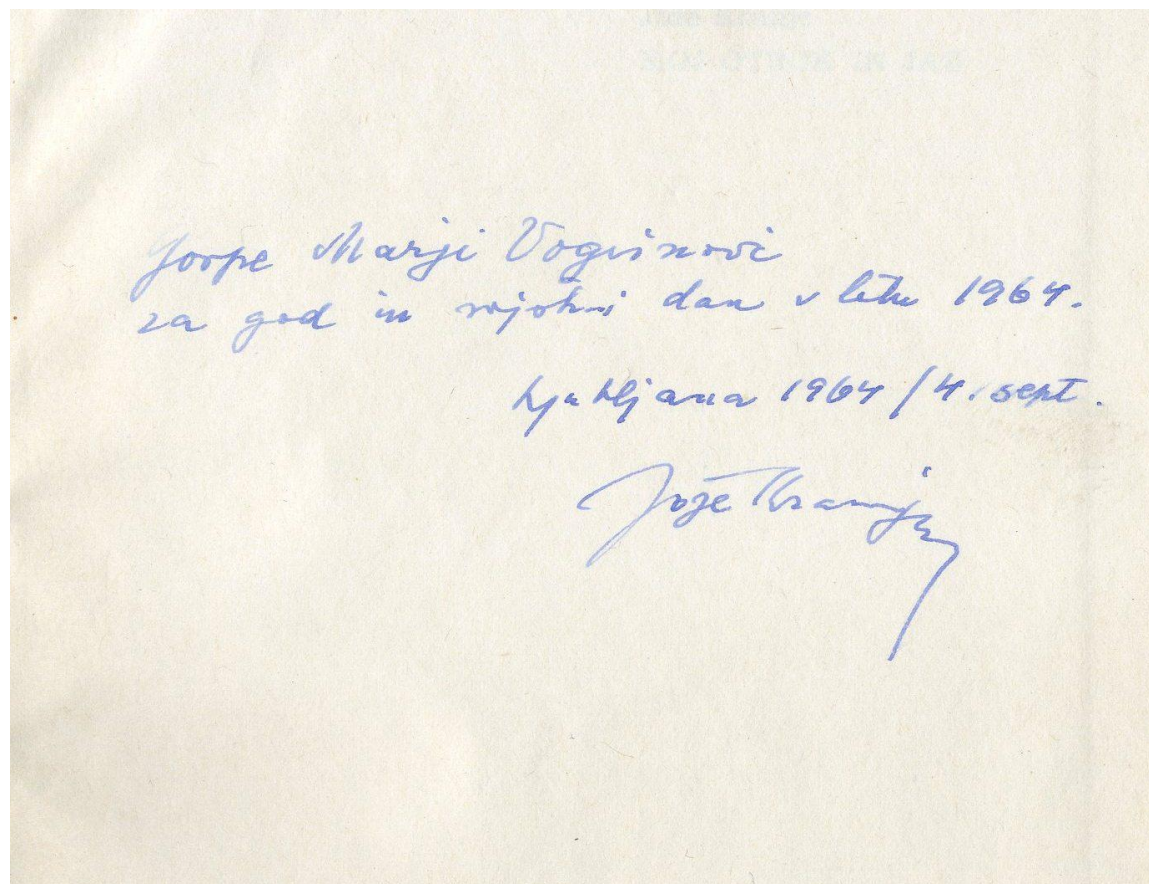 gospe Mariji Vogrinovi
za god in rojstni dan v letu 1964.
Ljubljana 1964/4. sept.
Jože Kranjc